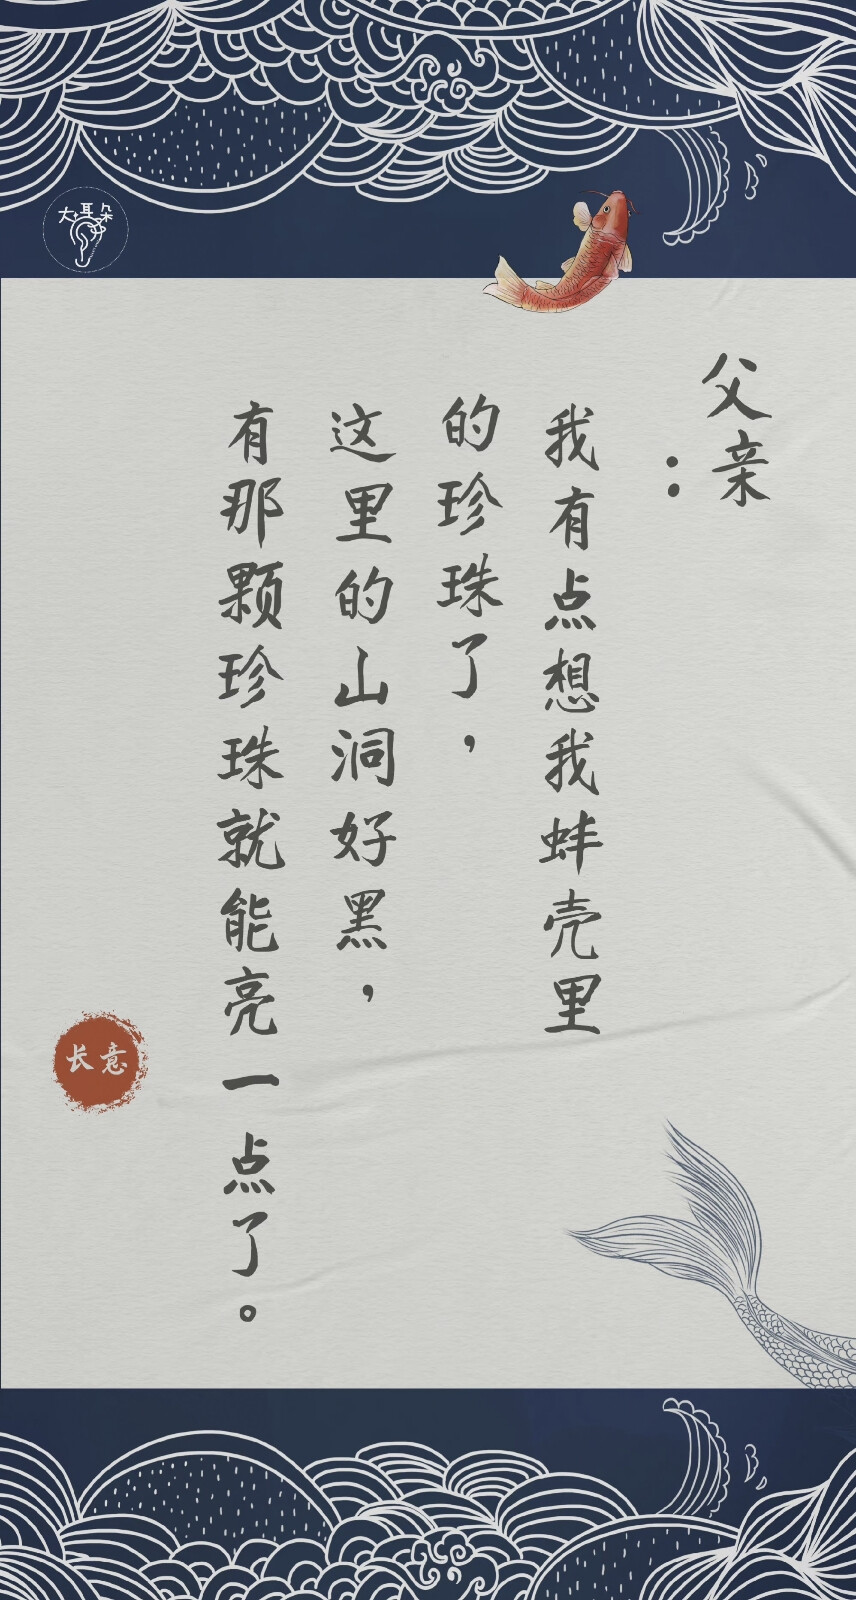 大耳朵
父亲：
我有点想我蚌壳里
的珍珠了，
这里的山洞好黑，
有那颗珍珠就能亮一点了。
长意